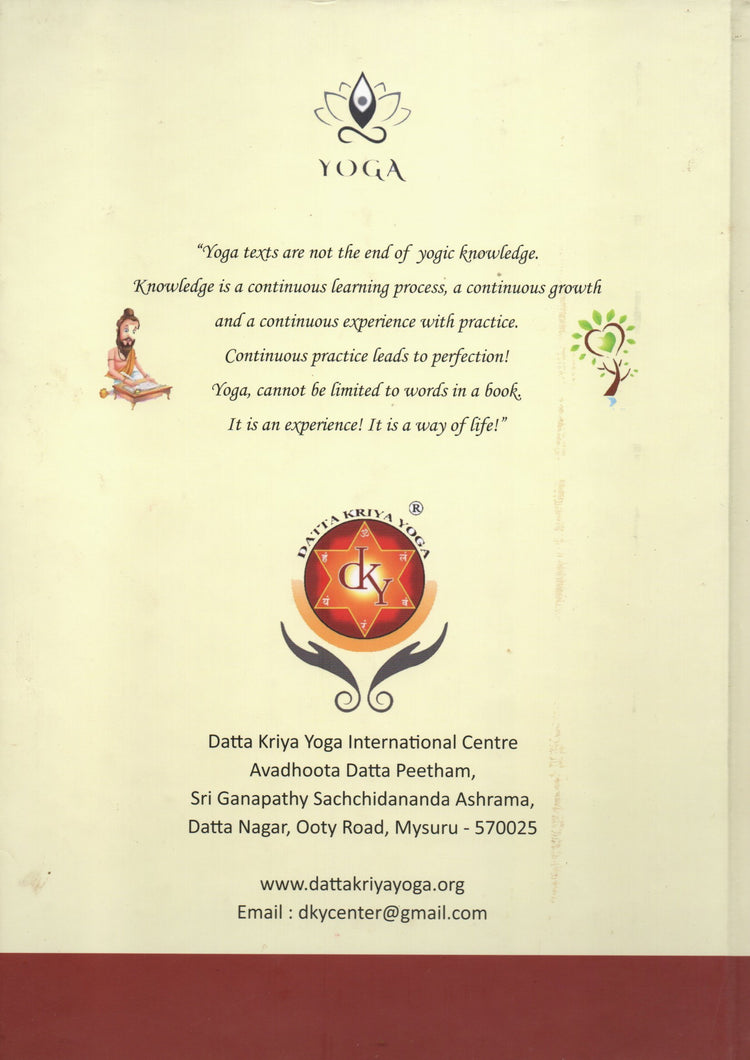 YOGA
“Yoga texts are not the end of yogic knowledge.
Knowledge is a continuous learning process, a continuous growth
and a continuous experience with practice.
Continuous practice leads to perfection!
Yoga, cannot be limited to words in a book.
It is an experience! It is a way of life!”
DATTA KRIYA YOGA ®
ॐ
हं लं
dky
यं वं
रं
Datta Kriya Yoga International Centre
Avadhoota Datta Peetham,
Sri Ganapathy Sachchidananda Ashrama,
Datta Nagar, Ooty Road, Mysuru - 570025
www.dattakriyayoga.org
Email : dkycenter@gmail.com